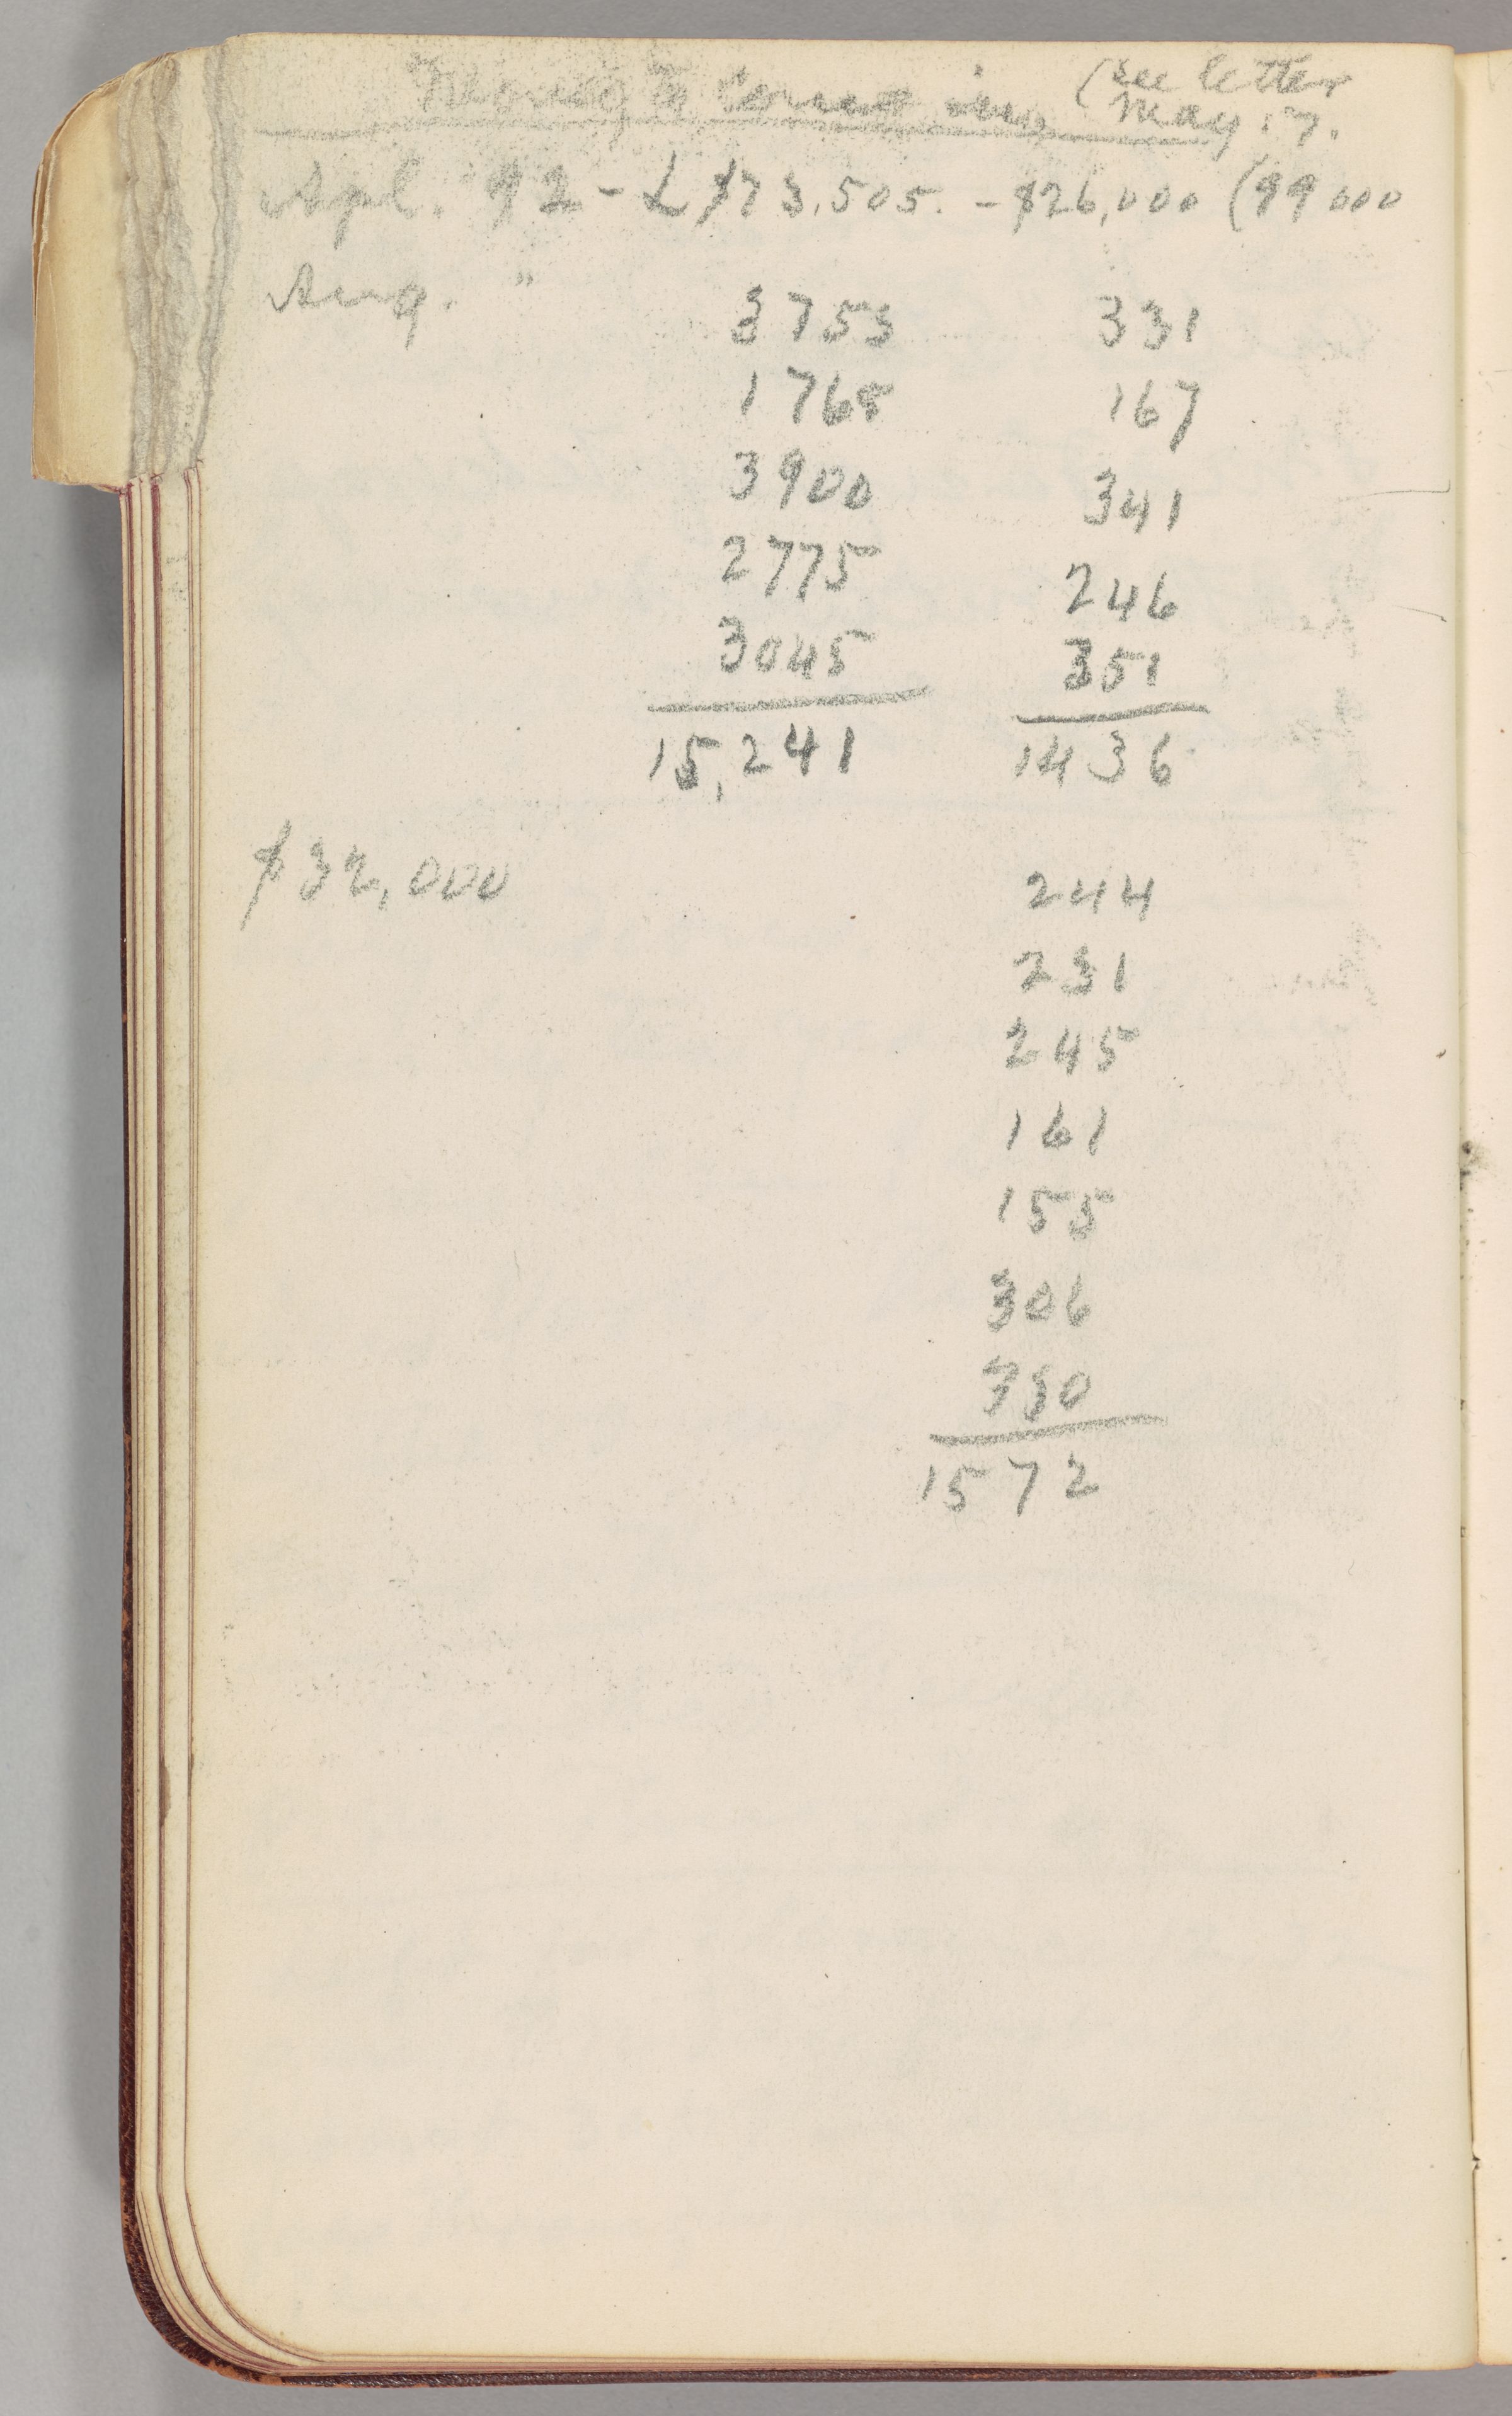 Money to come in (see letter
May 17.
Apl. 12 - L $73,505. - $26,000 (99000
Aug. "
3753 331
1768 167
3900 341
2775 246
3045 351
15,241 1436
$32,000 244
231
245
161
155
306
230
1572